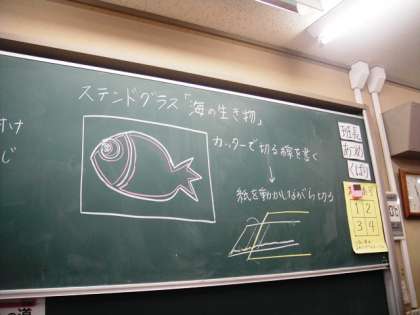 ステンドグラス「海の生き物」
カッターで切る線を書く
↓
紙を動かしながら切る
け
じ
班長
あつめ
くばり
1 2
3 4
の道